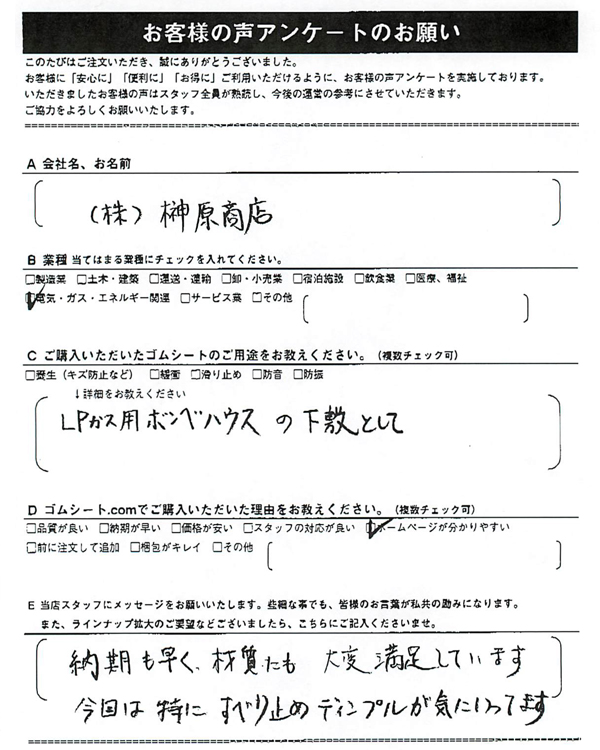 お客様の声アンケートのお願い
このたびはご注文いただき、誠にありがとうございました。
お客様に「安心に」「便利に」「お得に」ご利用いただけるように、お客様の声アンケートを実施しております。
いただきましたお客様の声はスタッフ全員が熟読し、今後の運営の参考にさせていただきます。
ご協力をよろしくお願いいたします。
A 会社名、お名前
(株) 榊原商店
B 業種 当てはまる業種にチェックを入れてください。
□製造業 □土木・建築 □運送・運輸 □卸・小売業 □宿泊施設 □飲食業 □医療、福祉
☑電気・ガス・エネルギー関連 □サービス業 □その他
C ご購入いただいたゴムシートのご用途をお教えください。(複数チェック可)
□養生(キズ防止など) □緩衝 □滑り止め □防音 □防振
↓詳細をお教えください
LPガス用ボンベハウスの下敷として
D ゴムシート.comでご購入いただいた理由をお教えください。(複数チェック可)
□品質が良い □納期が早い □価格が安い □スタッフの対応が良い ☑ホームページが分かりやすい
□前に注文して追加 □梱包がキレイ □その他
E 当店スタッフにメッセージをお願いいたします。些細な事でも、皆様のお言葉が私共の励みになります。
また、ラインナップ拡大のご要望などございましたら、こちらにご記入くださいませ。
納期も早く、材質にも 大変満足しています
今回は特にすべり止めディンプルが気に入ってます